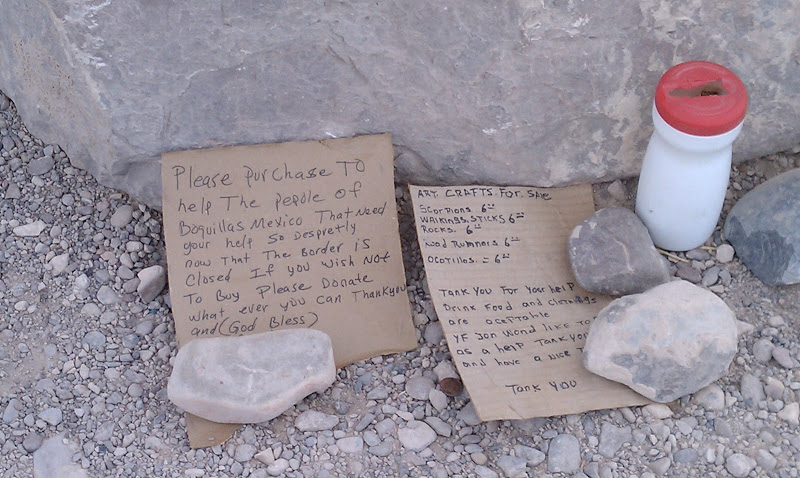 Please purchase To
help The people of
Boquillas Mexico That Need
your help so Despretly
now That The Border is
Closed If you wish Not
To Buy Please Donate
what ever you can Thankyou
and (God Bless)
ART. CRAFTS FOR SALE
Scorpions 6
WALKINGS. STICKS 6
ROCKS. 6
Road Runners 6
OCOTILLOS. = 6
TANK YOU FOR YOUR HELP
DRINK FOOD AND CLOTHINGS
are aceptable
YF JON WOND LIKE TO
as a help TANK YOU
and have a nice
TANK YOU